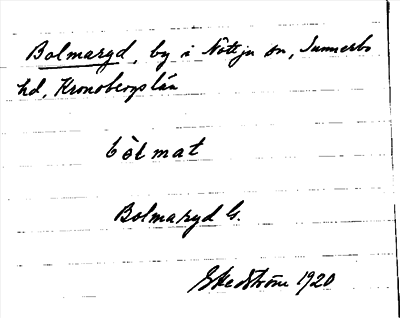 Bolmaryd, by i Nöttja sn, Sunnerbo
hd, Kronobergs län
bòlmat
Bolmaryd G.
Ekedström 1920